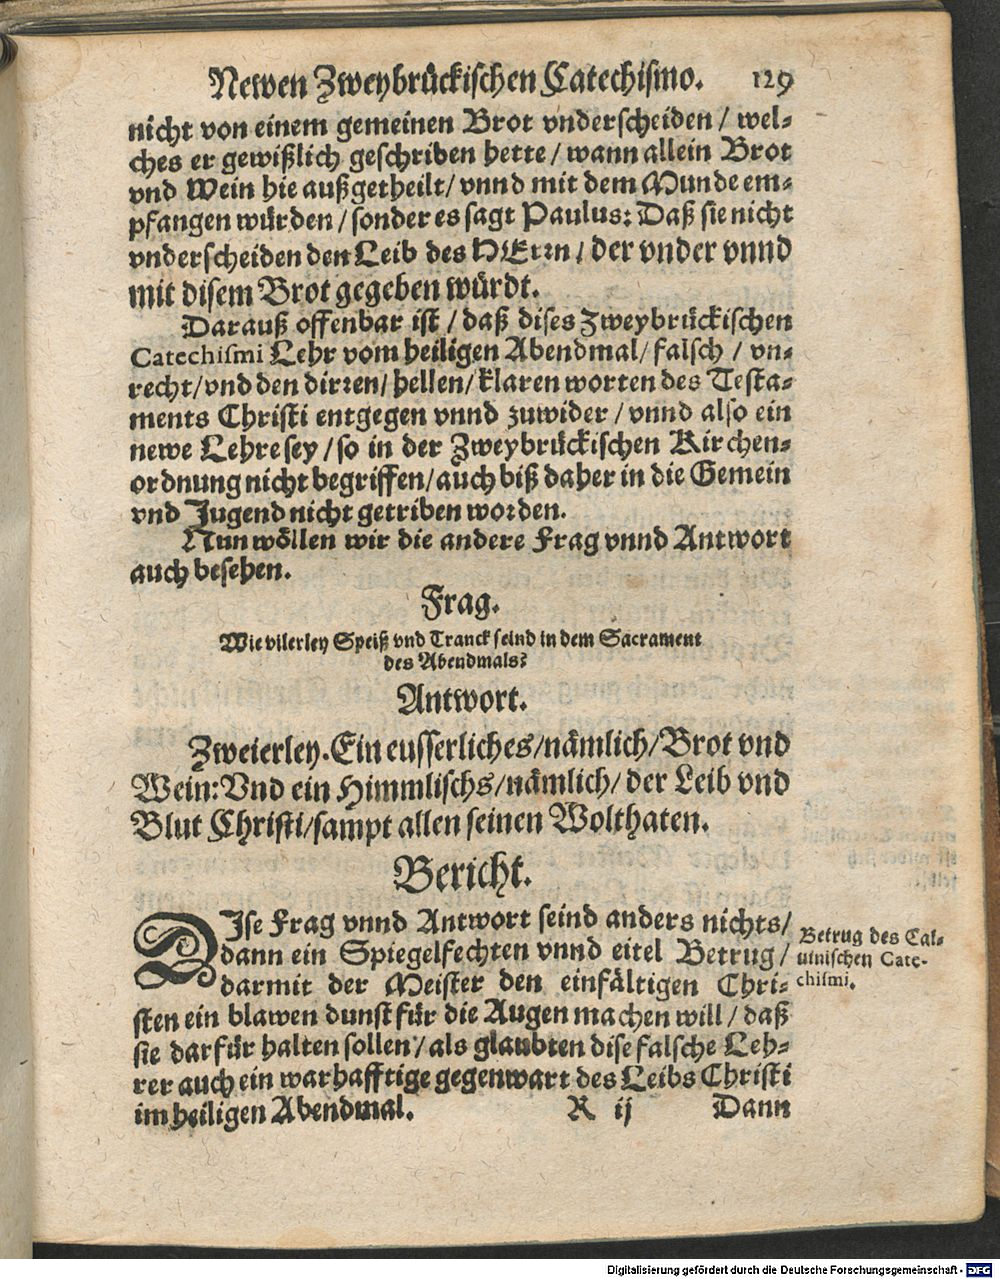 Newen Zweybrückischen Catechismo. 129
nicht von einem gemeinen Brot vnderscheiden / wel-
ches er gewißlich geschriben hette / wann allein Brot
vnd Wein hie außgetheilt / vnnd mit dem Munde em-
pfangen würden / sonder es sagt Paulus: Daß sie nicht
vnderscheiden den Leib des HErrn / der vnder vnnd
mit disem Brot gegeben würdt.
Darauß offenbar ist / daß dises Zweybrückischen
Catechismi Lehr vom heiligen Abendmal / falsch / vn-
recht / vnd den dirren / hellen / klaren worten des Testa-
ments Christi entgegen vnnd zuwider / vnnd also ein
newe Lehre sey / so in der Zweybrückischen Kirchen-
ordnung nicht begriffen / auch biß daher in die Gemein
vnd Jugend nicht getriben worden.
Nun wöllen wir die andere Frag vnnd Antwort
auch besehen.
Frag.
Wie vilerley Speiß vnd Tranck seind in dem Sacrament
des Abendmals?
Antwort.
Zweierley. Ein eusserliches / nämlich / Brot vnd
Wein: Vnd ein Himmlischs / nämlich / der Leib vnd
Blut Christi / sampt allen seinen Wolthaten.
Bericht.
DIse Frag vnnd Antwort seind anders nichts /
dann ein Spiegelfechten vnnd eitel Betrug /
darmit der Meister den einfältigen Chri-
sten ein blawen dunst für die Augen machen will / daß
sie darfür halten sollen / als glaubten dise falsche Leh-
rer auch ein warhafftige gegenwart des Leibs Christi
im heiligen Abendmal.
Betrug des Cal-
uinischen Cate-
chismi.
R ij Dann
Digitalisierung gefördert durch die Deutsche Forschungsgemeinschaft - DFG